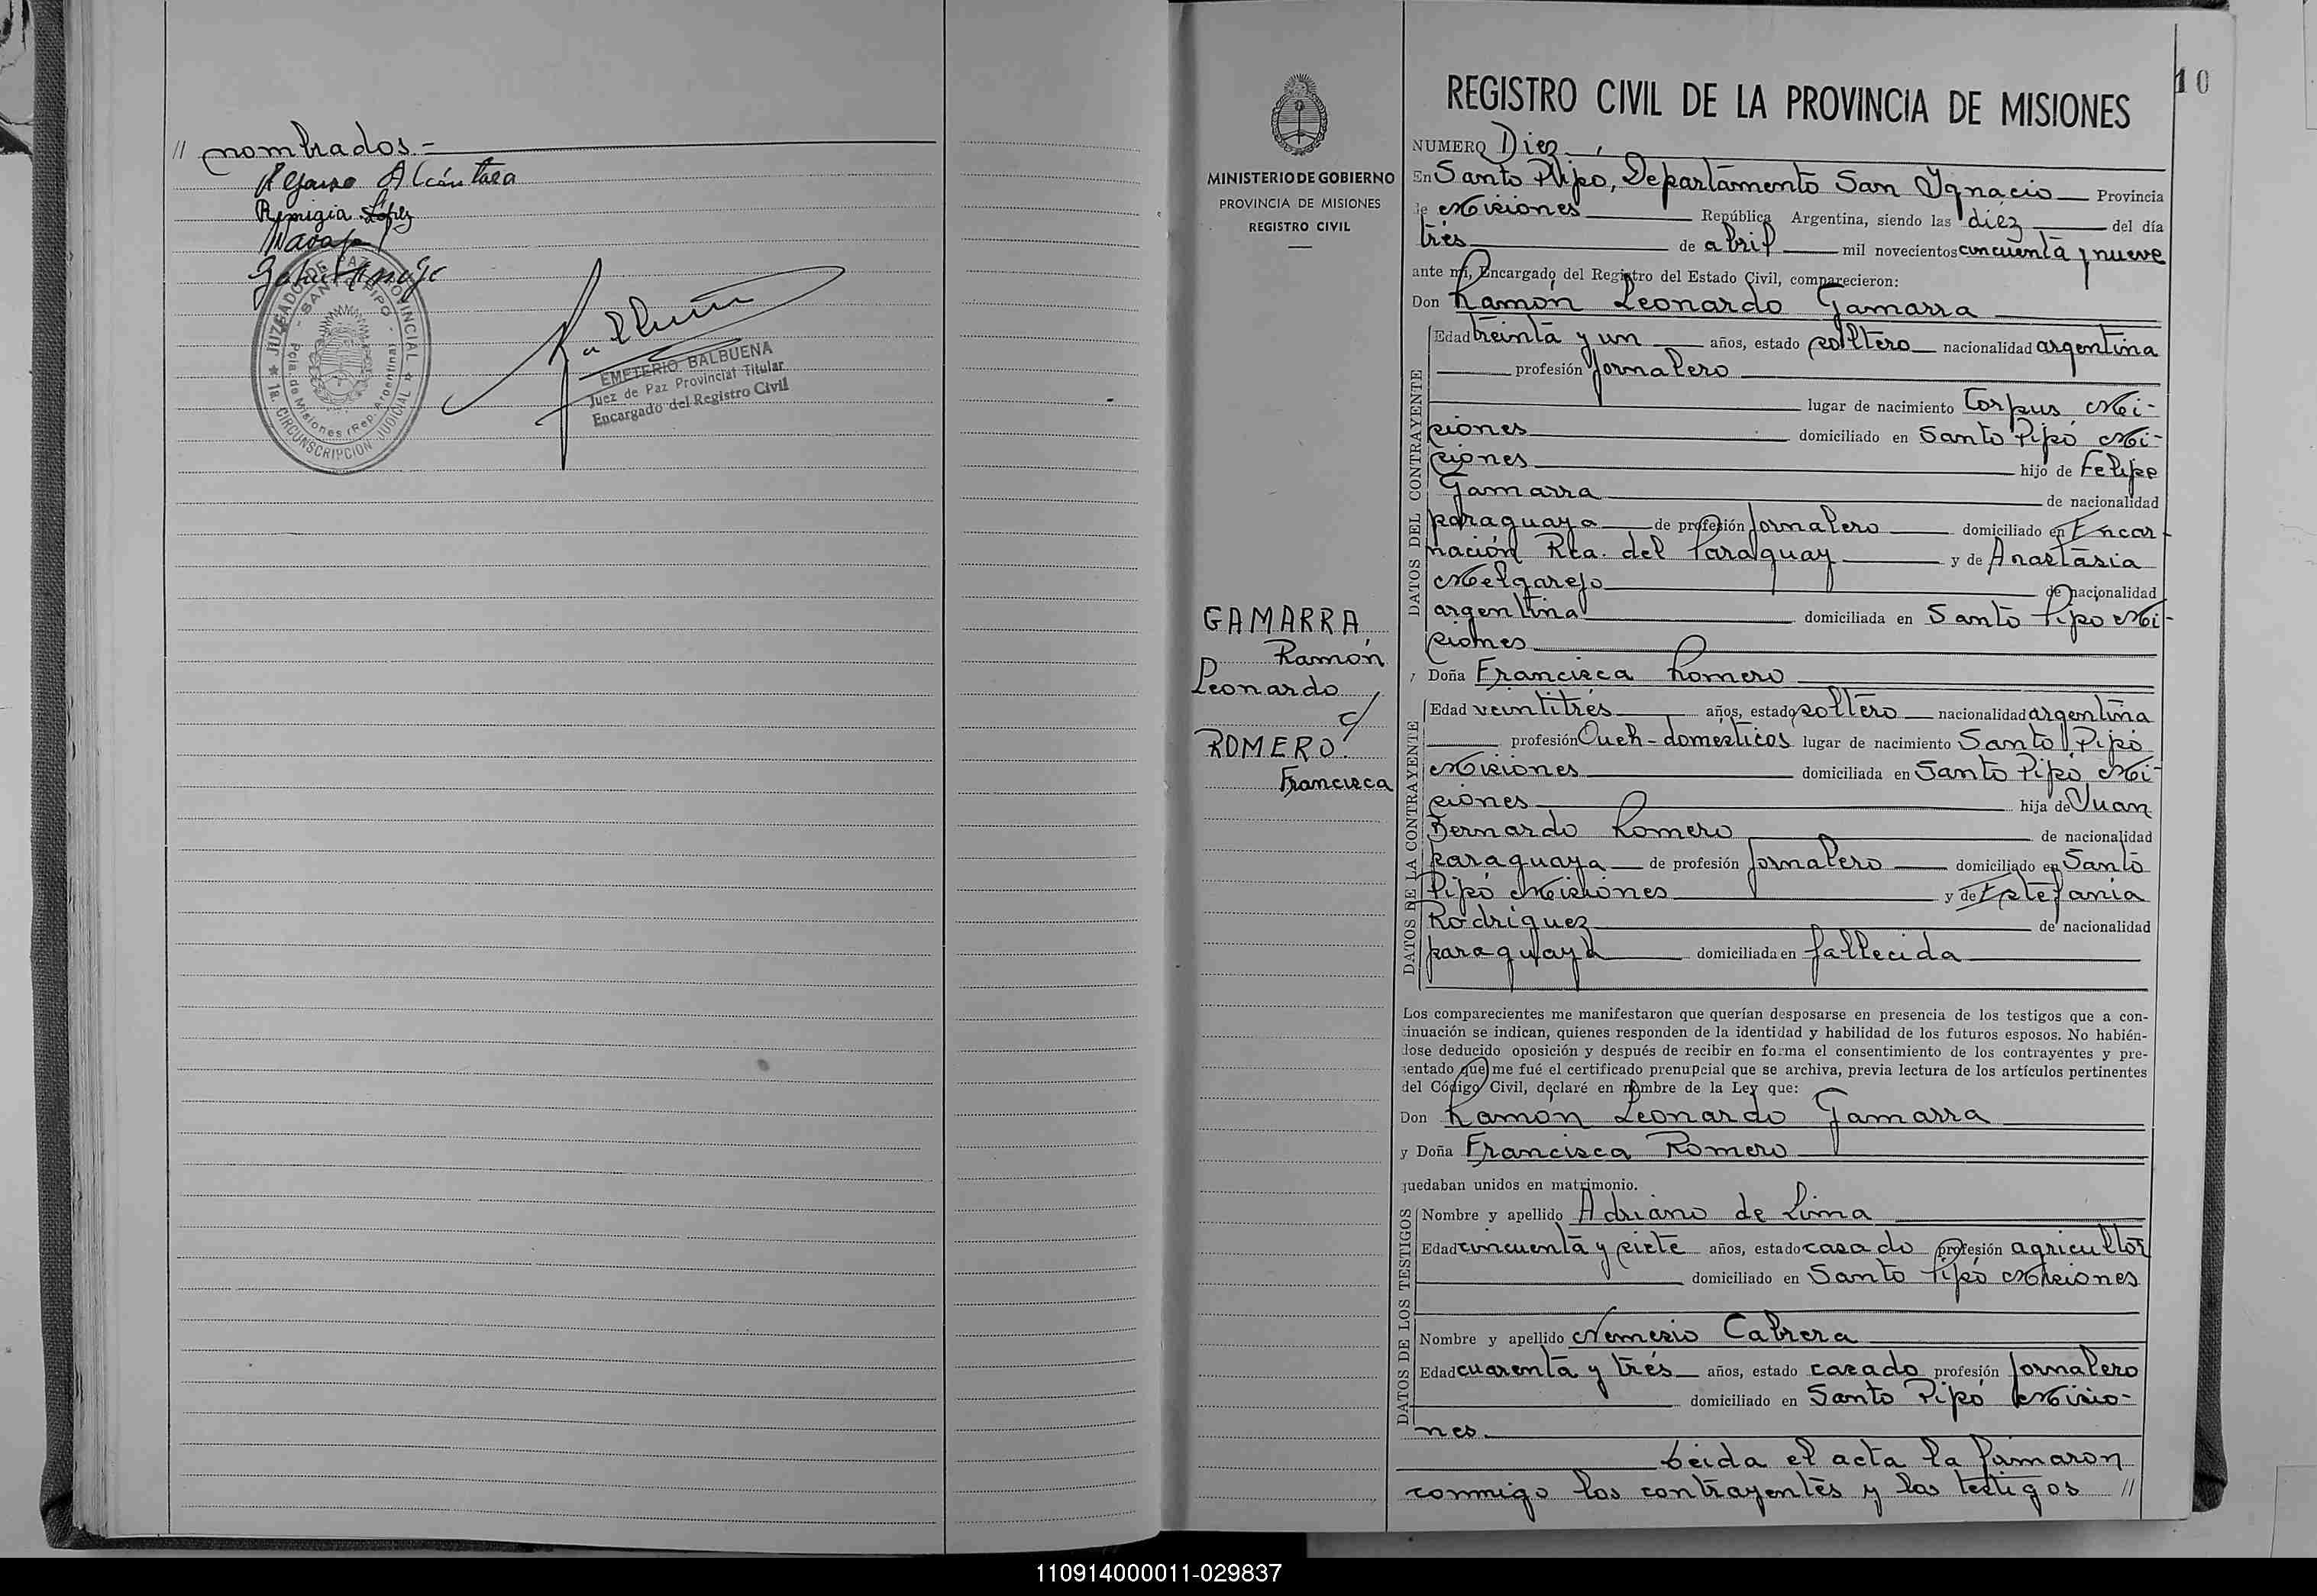 // nombrados -
Alcántara
Remigia López
JUZGADO DE PAZ PROVINCIAL
- SANTO PIPO -
Pcia. de Misiones (Rep. Argentina)
1a. CIRCUNSCRIPCION JUDICIAL
EMETERIO BALBUENA
Juez de Paz Provincial Titular
Encargado del Registro Civil
10
MINISTERIO DE GOBIERNO
PROVINCIA DE MISIONES
REGISTRO CIVIL
GAMARRA,
Ramón
Leonardo
c/
ROMERO.
Francisca
REGISTRO CIVIL DE LA PROVINCIA DE MISIONES
NUMERO Diez
En Santo Pipo, Departamento San Ignacio Provincia
de Misiones República Argentina, siendo las diéz del día
trés de abril mil novecientos cincuenta y nueve
ante mí, Encargado del Registro del Estado Civil, comparecieron:
Don Ramón Leonardo Gamarra
DATOS DEL CONTRAYENTE
Edad treinta y un años, estado soltero nacionalidad argentina
profesión Jornalero
lugar de nacimiento Corpus Mi-
siones domiciliado en Santo Pipó Mi-
siones hijo de Felipe
Gamarra de nacionalidad
paraguaya de profesión Jornalero domiciliado en Encar-
nación Rca. del Paraguay y de Anastasia
Melgarejo de nacionalidad
argentina domiciliada en Santo Pipo Mi-
siones
y Doña Francisca Romero
DATOS DE LA CONTRAYENTE
Edad veintitrés años, estado soltero nacionalidad argentina
profesión Queh-domesticos lugar de nacimiento Santo Pipó
Misiones domiciliada en Santo Pipó Mi-
siones hija de Juan
Bernardo Romero de nacionalidad
paraguaya de profesión Jornalero domiciliado en Santo
Pipó Misiones y de Estefania
Rodríguez de nacionalidad
paraguaya domiciliada en fallecida
Los comparecientes me manifestaron que querían desposarse en presencia de los testigos que a con-
tinuación se indican, quienes responden de la identidad y habilidad de los futuros esposos. No habién-
dose deducido oposición y después de recibir en forma el consentimiento de los contrayentes y pre-
sentado que me fué el certificado prenupcial que se archiva, previa lectura de los artículos pertinentes
del Código Civil, declaré en nombre de la Ley que:
Don Ramon Leonardo Gamarra
y Doña Francisca Romero
quedaban unidos en matrimonio.
DATOS DE LOS TESTIGOS
Nombre y apellido Adriano de Lima
Edad cincuenta y siete años, estado casado profesión agricultor
domiciliado en Santo Pipó Misiones
Nombre y apellido Nemesio Cabrera
Edad cuarenta y trés años, estado casado profesión Jornalero
domiciliado en Santo Pipó Misio-
nes.
Leida el acta la firmaron
conmigo los contrayentes y los testigos //
110914000011-029837